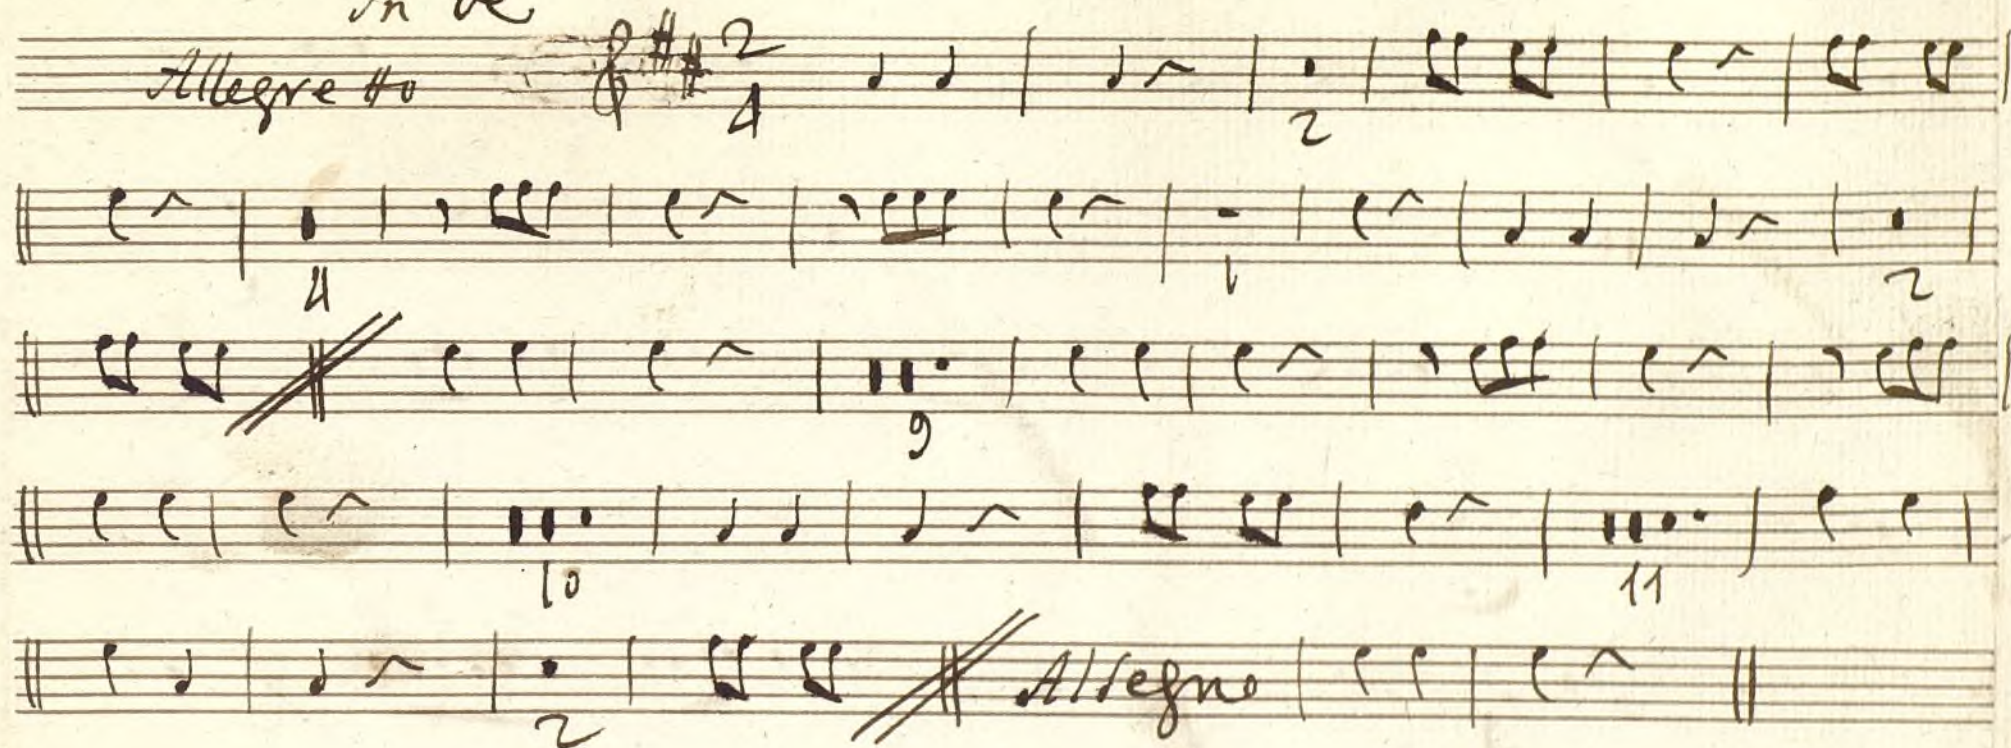 Allegretto 2 4
2
4 1 2
9
10 11
2 Al segno